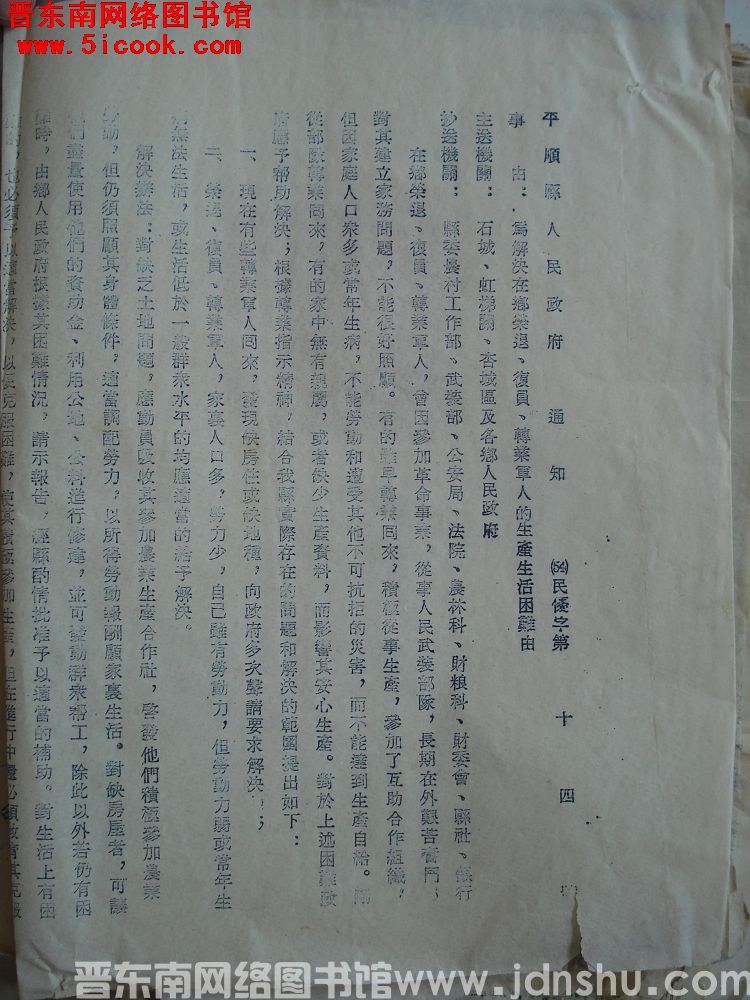 晋东南网络图书馆
www.5icook.com
平順縣人民政府通知 (54)民優字第十四號
事由：爲解決在鄉榮退、復員、轉業軍人的生產生活困難由
主送機關：石城、虹梯關、杏城區及各鄉人民政府
抄送機關：縣委農村工作部、武裝部、公安局、法院、農林科、財粮科、財委會、縣社、銀行
在鄉榮退、復員、轉業軍人，曾因參加革命事業，從事人民武裝部隊，長期在外艱苦奮鬥；
對其建立家務問題，不能很好照顧。有的雖早轉業回來，積極從事生產，參加了互助合作組織，
但因家庭人口衆多或常年生病，不能勞動和遭受其他不可抗拒的災害，而不能達到生產自給。而
從部隊轉業回來，有的家中無有親屬，或者缺少生產資料，而影響其安心生產。對於上述困難政
府應予帮助解決；根據轉業指示精神，結合我縣實際存在的問題和解決的範圍提出如下：
一、現在有些轉業軍人回來，發現缺房住或缺地種，向政府多次聲請要求解決；
二、榮退、復員、轉業軍人，家裏人口多，勞力少，自己雖有勞動力，但勞動力弱或常年生
病無法生活，或生活低於一般群衆水平的均應適當的給予解決。
解決辦法：對缺乏土地問題，應動員吸收其參加農業生產合作社，啓發他們積極參加農業
勞動，但仍須照顧其身體條件，適當調配勞力，以所得勞動報酬顧家裏生活。對缺房屋者，可讓
他們盡量使用他們的資助金、利用公地、公料進行修建，並可發動群衆帮工，除此以外若仍有困
難時，由鄉人民政府根據其困難情況，請示報告，經縣酌情批准予以適當的補助。對生活上有困
難的，也必須予以適當解決，以便克服困難，使其積極參加生產，但在進行中還必須教育其克服
晋东南网络图书馆www.jdnshu.com